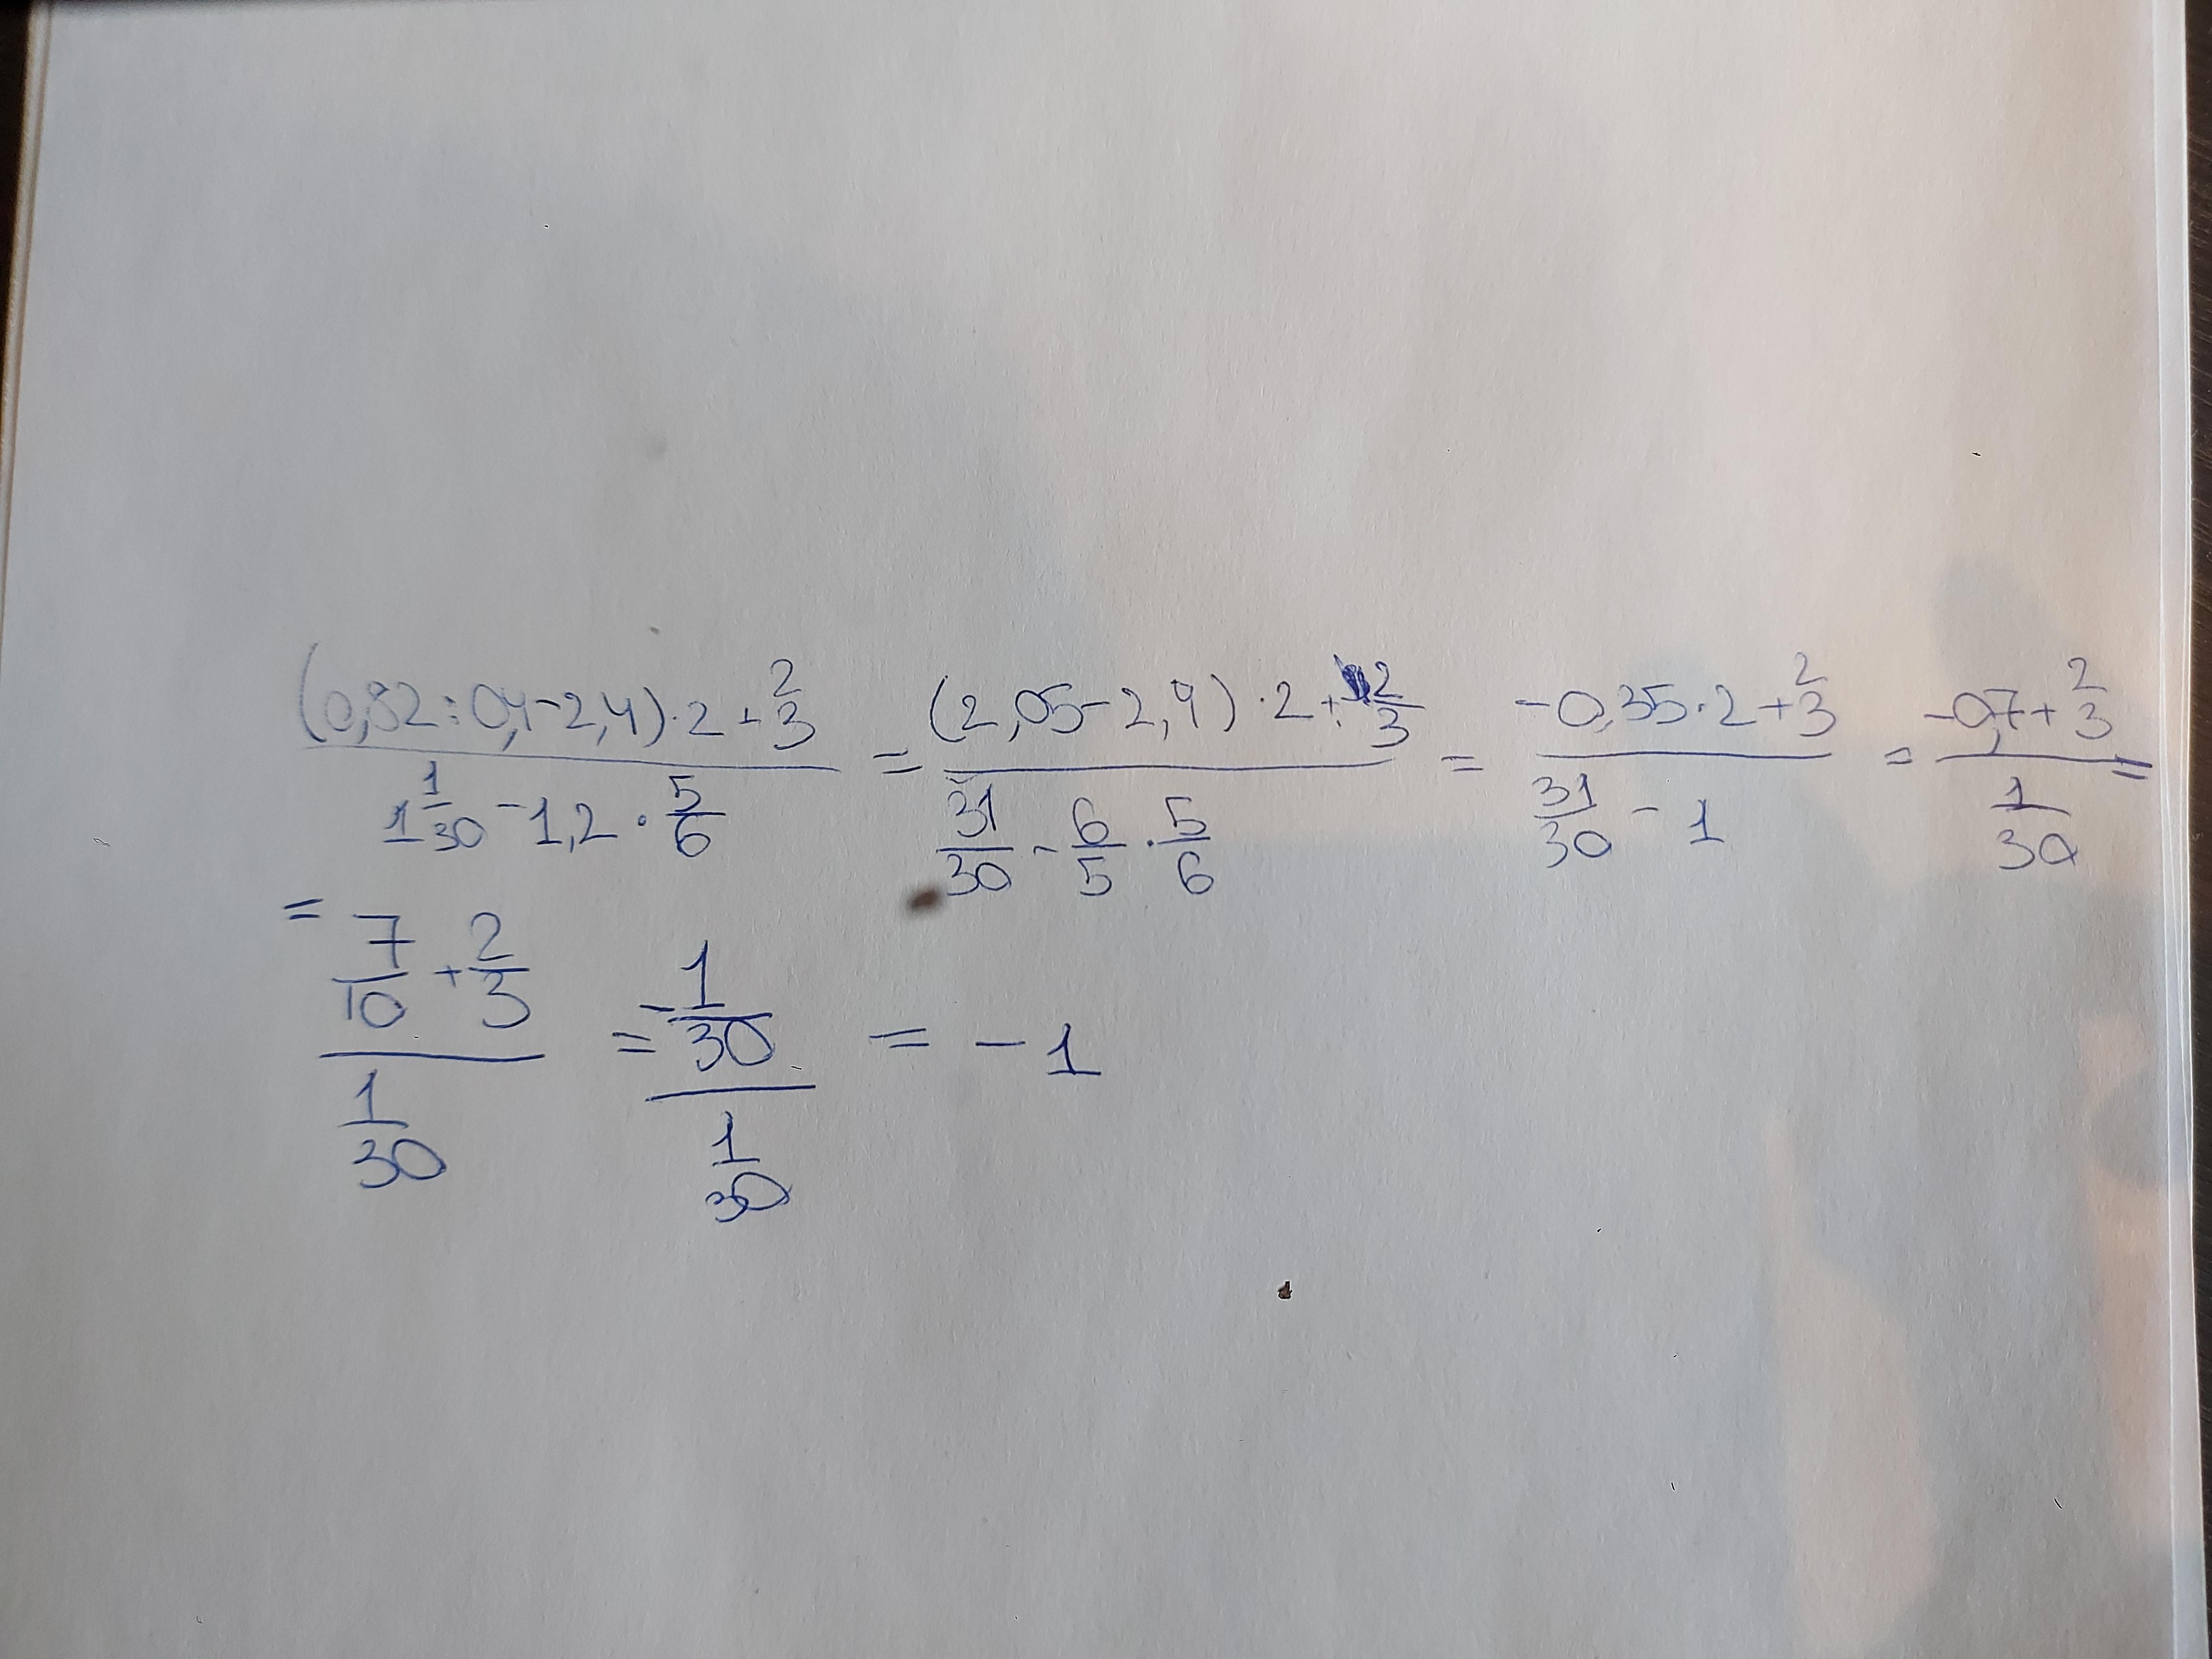 (0,82:0,4-2,4)·2+2/3 / 1 1/30 - 1,2 · 5/6 = (2,05-2,4)·2+2/3 / 31/30 - 6/5 · 5/6 = -0,35·2+2/3 / 31/30 - 1 = -0,7+2/3 / 1/30 =
= 7/10 + 2/3 / 1/30 = -1/30 / 1/30 = -1